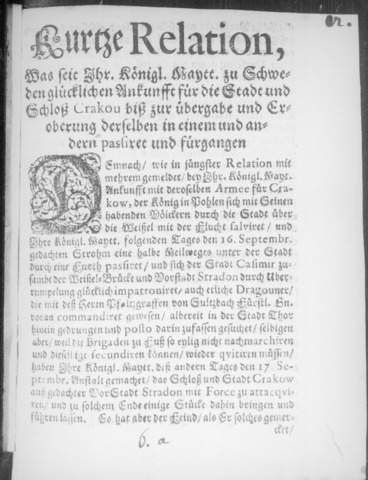 Kurtze Relation,
Was seit Ihr. Königl. Maytt. zu Schwe-
den glücklichen Ankunfft für die Stadt und
Schloß Crakou biß zur übergabe und Er-
oberung derselben in einem und an-
dern passiret und fürgangen
DEmnach / wie in jüngster Relation mit
mehrem gemeldet / bey Ihr. Königl. Mayt.
Ankunfft mit deroselben Armee für Cra-
kow, der König in Pohlen sich mit Seinen
habenden Völckern durch die Stadt über
die Weißel mit der Flucht salviret / und
Ihre Königl. Maytt. folgenden Tages den 16. Septembr.
gedachten Strohm eine halbe Meilweges unter der Stadt
durch eine Furth passiret / und sich der Stadt Casimir zu-
sambt der Weißel-Brücke und Vorstadt Stradon durch Uber-
rumpelung glücklich impatroniret / auch etliche Dragouner /
die mit deß Herrn Pfaltzgraffen von Sultzbach Fürstl. En-
voran commandiret gewesen / albereit in der Stadt Thor
hinein gedrungen und posto darin zufassen gesuchet / selbigen
aber / weil die Brigaden zu Fuß so eylig nicht nachmarchiren
und dieselbige secundiren können / wieder qvitiren müssen /
haben Ihre Königl. Maytt. deß andern Tages den 17. Se-
ptembr. Anstalt gemachet / das Schloß und Stadt Crakow
auß gedachter VorStadt Stradon mit Force zu attacqvi-
ren / und zu solchem Ende einige Stücke dahin bringen und
führen lassen. Es hat aber der Feind / als Er solches gemer-
cket /